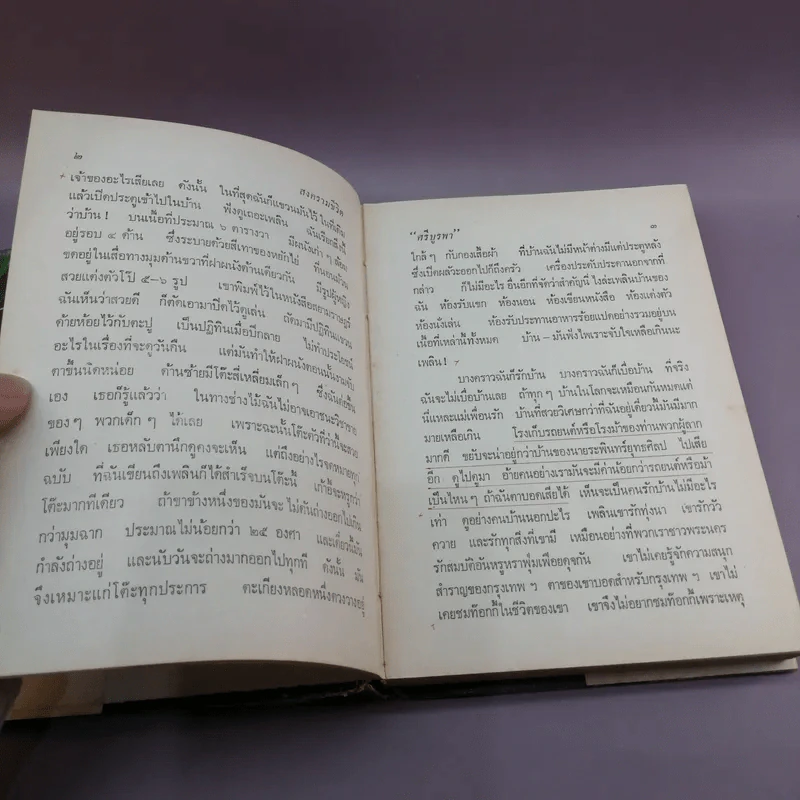 ๒
สงครามชีวิต
เจ้าของอะไรเสียเลย ดังนั้น ในที่สุดฉันก็แขวนมันไว้ ในที่เดิม
แล้วเปิดประตูเข้าไปในบ้าน ฟังดูเถอะเพลิน ฉันเรียกสิ่งนี้
ว่าบ้าน! บนเนื้อที่ประมาณ ๖ ตารางวา มีผนังเก่า ๆ ล้อม
อยู่รอบ ๔ ด้าน ซึ่งระบายด้วยสีเทาของหยักไย่ ที่นอนม้วน
ขดอยู่ในเสื่อทางมุมด้านขวาที่ฝาผนังด้านเดียวกัน มีรูปผู้หญิง
สวยแต่งตัวโป๊ ๕-๖ รูป เขาพิมพ์ไว้ในหนังสือสยามราษฎร์
ฉันเห็นว่าสวยดี ก็ตัดเอามาปิดไว้ดูเล่น ถัดมามีปฏิทินแขวน
ด้ายห้อยไว้กับตะปู เป็นปฏิทินเมื่อปีกลาย ไม่ทำประโยชน์
อะไรในเรื่องที่จะดูวันคืน แต่มันทำให้ฝาผนังตอนนั้นงามกับ
ตาขึ้นนิดหน่อย ด้านซ้ายมีโต๊ะสี่เหลี่ยมเล็กๆ ซึ่งฉันต่อขึ้น
เอง เธอก็รู้แล้วว่า ในทางช่างไม้ฉันไม่อาจเอาชนะวิชาชีพ
ของๆ พวกเด็กๆ ได้เลย เพราะฉะนั้นโต๊ะตัวที่ว่านี้จะสวย
เพียงใด เธอหลับตานึกดูคงจะเห็น แต่ถึงอย่างไรจดหมายทุก
ฉบับ ที่ฉันเขียนถึงเพลินก็ได้สำเร็จบนโต๊ะนี้ เก้าอี้จะหรูกว่า
โต๊ะมากทีเดียว ถ้าขาข้างหนึ่งของมันจะไม่ดันถ่างออกไปเกิน
กว่ามุมฉาก ประมาณไม่น้อยกว่า ๒๕ องศา และเดี๋ยวนี้มันก็
กำลังถ่างอยู่ และนับวันจะถ่างมากออกไปทุกที ดังนั้น มัน
จึงเหมาะแก่โต๊ะทุกประการ ตะเกียงหลอดหนึ่งดวงวางอยู่
“ศรีบูรพา”
๓
ใกล้ๆ กับกองเสื้อผ้า ที่บ้านฉันไม่มีหน้าต่างมีแต่ประตูหลัง
ซึ่งเปิดผลัวะออกไปก็ถึงครัว เครื่องประดับประดานอกจากที่
กล่าว ก็ไม่มีอะไร อื่นอีกที่จัดว่าสำคัญนี่ ไงล่ะเพลินบ้านของ
ฉัน ห้องรับแขก ห้องนอน ห้องเขียนหนังสือ ห้องแต่งตัว
ห้องนั่งเล่น ห้องรับประทานอาหารร้อยแปดอย่างรวมอยู่บน
เนื้อที่เหล่านี้ทั้งหมด บ้าน – มันฟังไพเราะจับใจเหลือเกินนะ
เพลิน!
บางคราวฉันก็รักบ้าน บางคราวฉันก็เบื่อบ้าน ที่จริง
ฉันจะไม่เบื่อบ้านเลย ถ้าทุก ๆ บ้านในโลกจะเหมือนกันหมดแต่
นี่แหละแม่เพื่อนรัก บ้านที่สวยวิเศษกว่าที่ฉันอยู่เดี๋ยวนี้มันมีมาก
มายเหลือเกิน โรงเก็บรถยนต์หรือโรงม้าของท่านพวกผู้ลาก
มากดี ขยับจะน่าอยู่กว่าบ้านของนายระพินทร์ยุทธศิลป ไปเสีย
อีก ดูไปดูมา อ้ายคนอย่างเรามันจะมีค่าน้อยกว่ารถยนต์หรือม้า
เป็นไหนๆ ถ้าฉันตาบอดเสียได้ เห็นจะเป็นคนรักบ้านไม่มีอะไร
เท่า ดูอย่างคนบ้านนอกปะไร เพลินเขารักทุ่งนา เขารักวัว
ควาย และรักทุกสิ่งที่เขามี เหมือนอย่างที่พวกเราชาวพระนคร
รักสมบัติอันหรูหราฟุ่มเฟือยดุจกัน เขาไม่เคยรู้จักความสนุก
สำราญของกรุงเทพ ๆ ตาของเขาบอดสำหรับกรุงเทพ ๆ เขาไม่
เคยชมท๊อกกี้ในชีวิตของเขา เขาจึงไม่อยากชมท๊อกกี้เพราะเหตุ